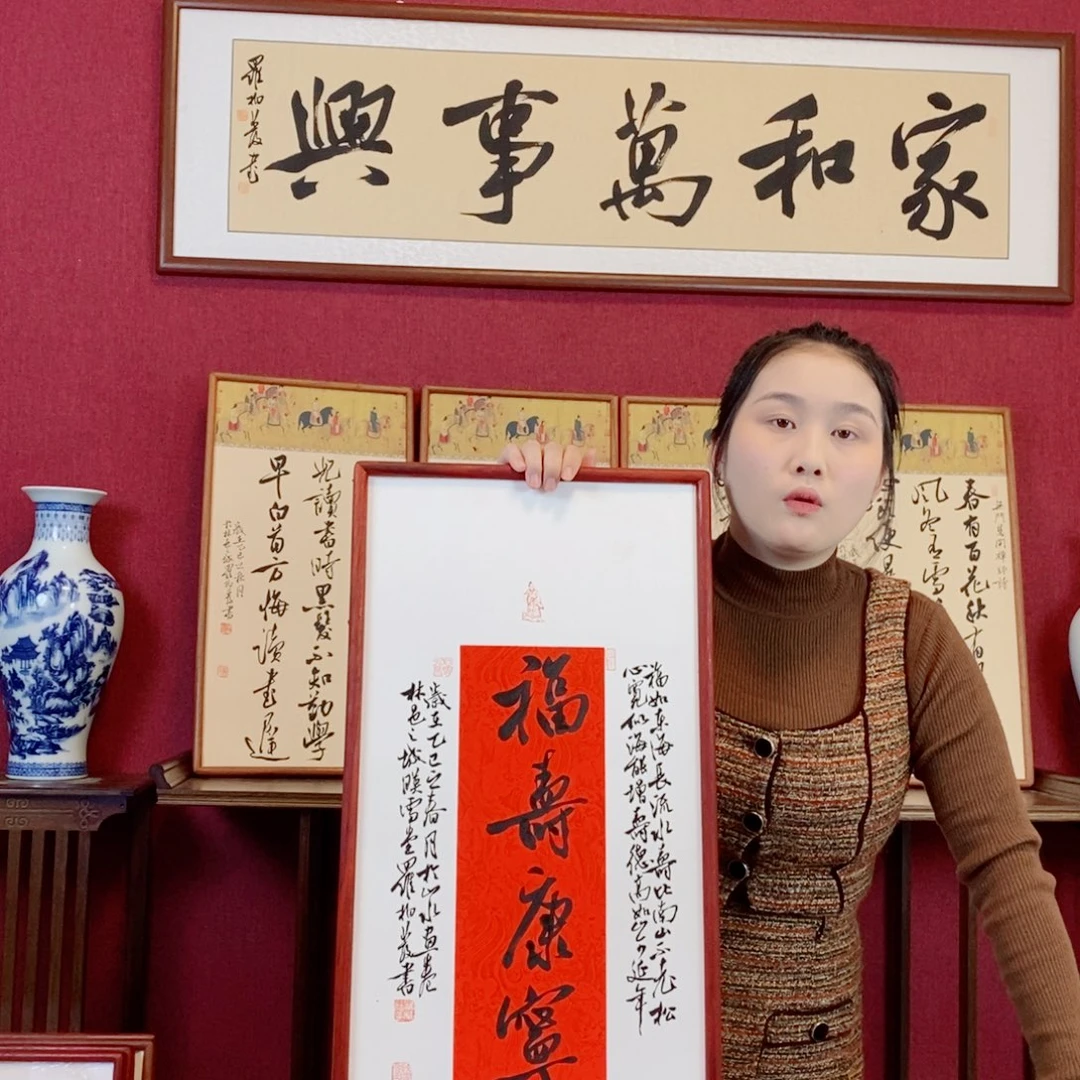 家和萬事興
福壽康寧
福如東海長流水壽比南山不老松
心寬似海能增壽德高如山可延年
歲在乙巳之春月於山水畫卷
林邑之城
兒讀書時黑髮不知勤學
早白首方悔讀書遲
無門慧開禪師詩
春有百花秋有
風冬有雪
便是